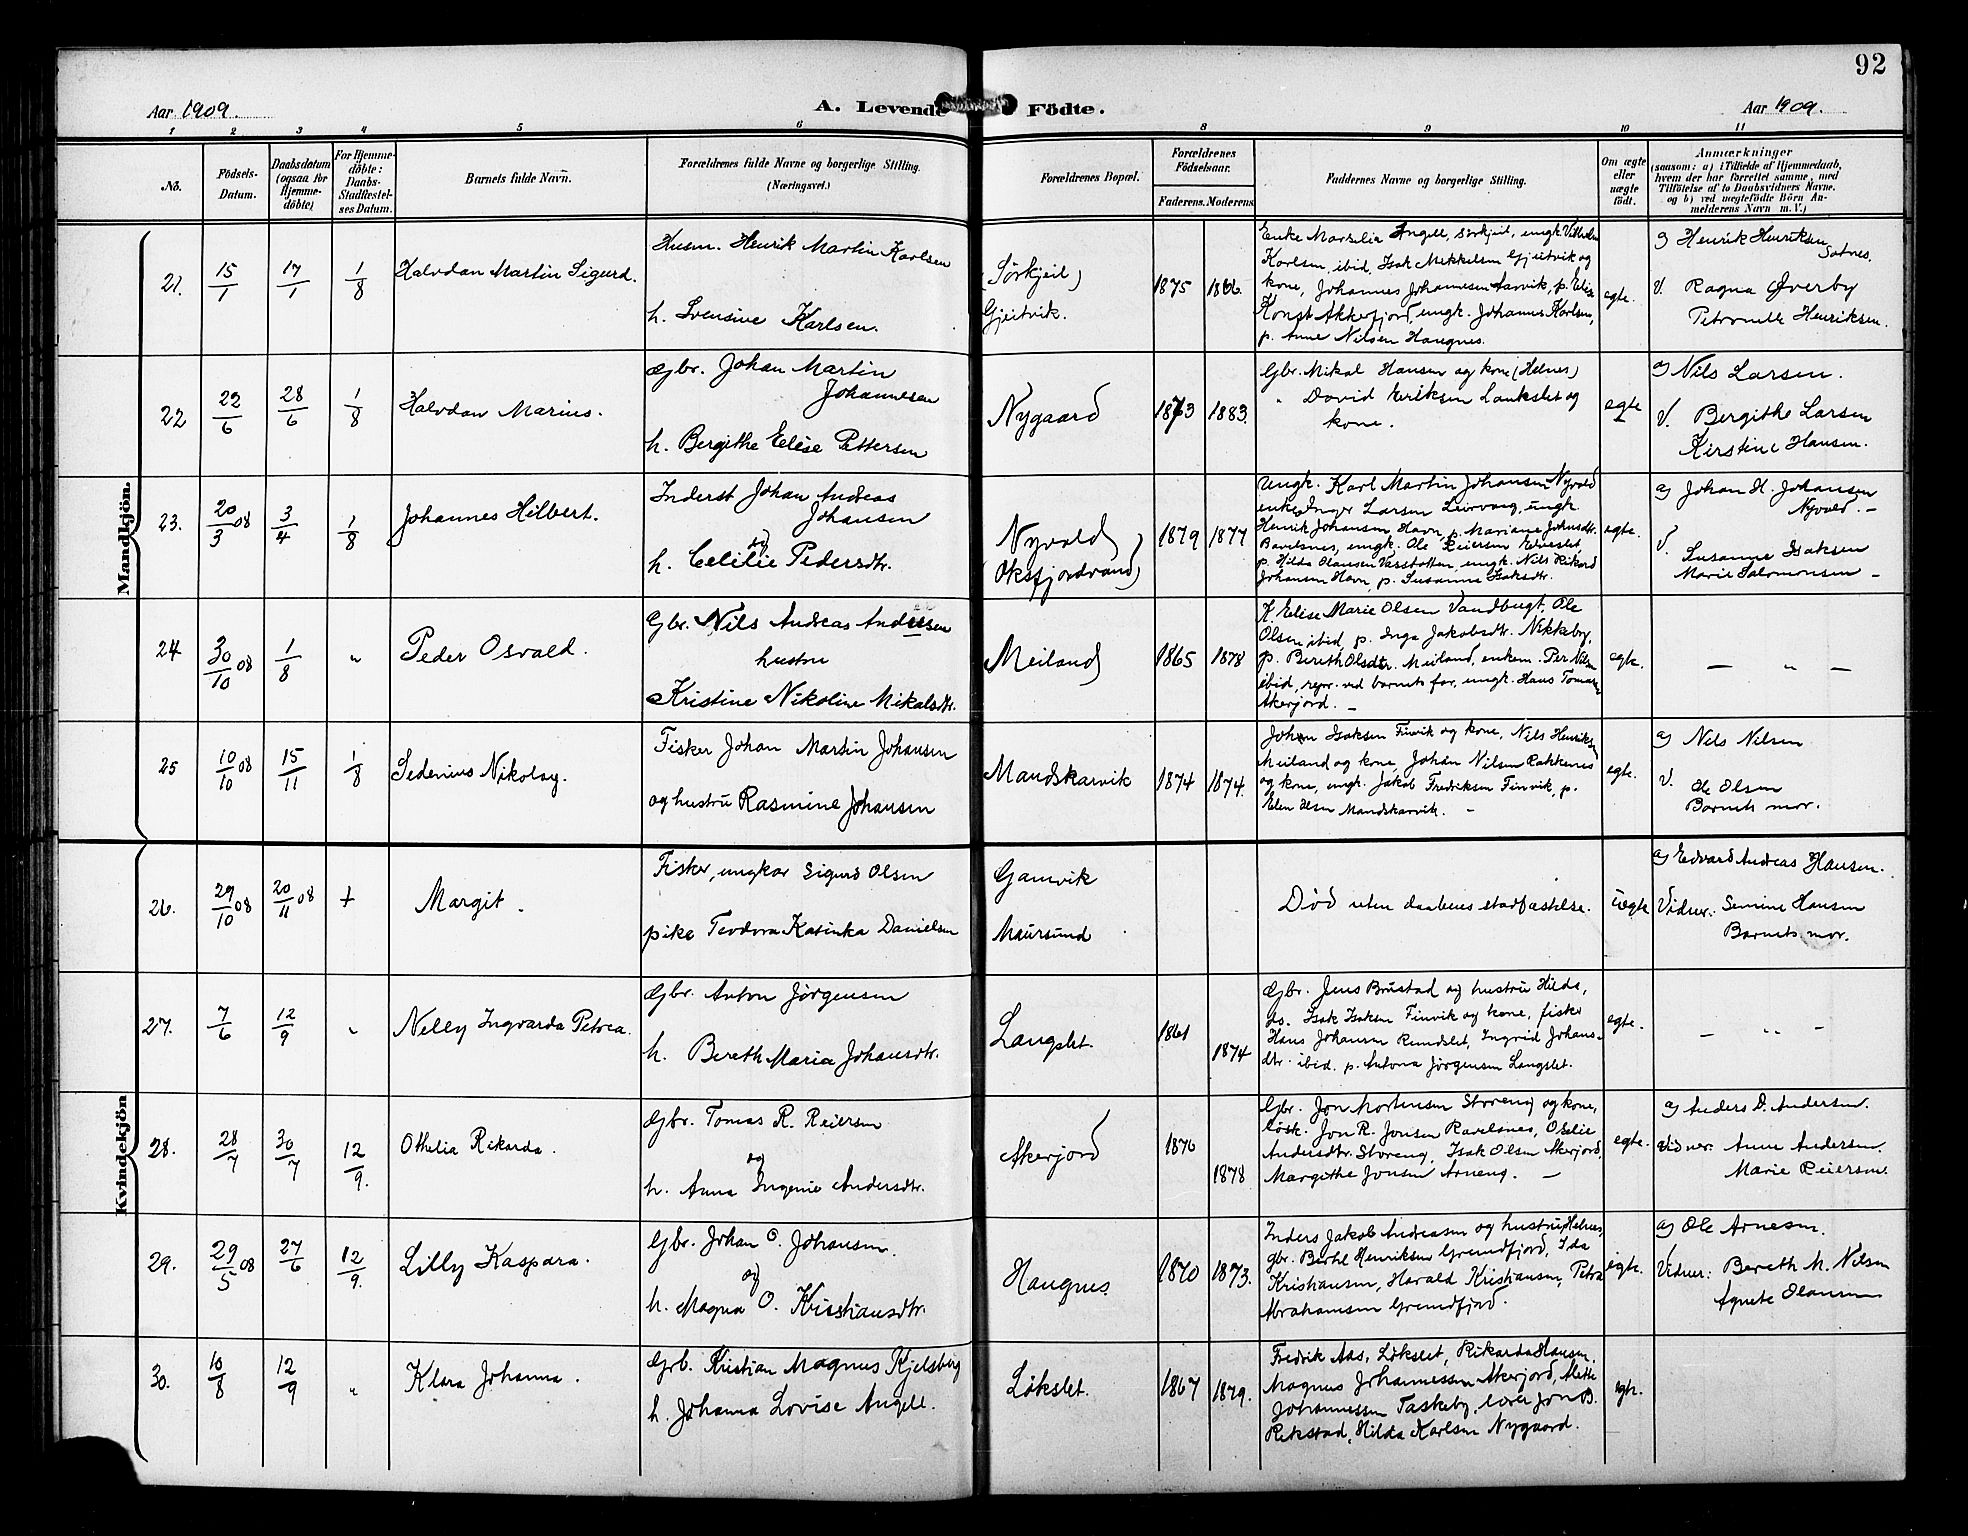 92
Aar 1909.
A. Levende Födte.
Aar 1909.
1 2 3 4 5 6 8 9 10 11
No.
Födsels-
Datum.
Daabsdatum
(ogsaa for
Hjemme-
döbte)
For Hjemme-
döbte:
Daabs-
Stadfæstel-
ses Datum.
Barnets fulde Navn.
Forældrenes fulde Navne og borgerlige Stilling.
(Næringsvei.)
Forældrenes Bopæl.
Forældrenes
Födselsaar.
Faderens. Moderens
Faddernes Navne og borgerlige Stilling.
Om ægte
eller
uægte
födt.
Anmærkninger
(saasom: a) i Tilfælde af Hjemmedaab,
hvem der har forrettet samme, med
Tilföielse af to Daabsvidners Navne.
og b) ved uægtefödte Börn An-
melderens Navn m. V.)
Mandkjön.
21. 15/1 17/1 1/8 Halvdan Martin Sigurd.
Husm. Henrik Martin Karlsen
h. Karlsen.
(Sørkjeil)
Gjeitvik.
1875 1866.
Enke Marselia Angell, Sörkjeil, ungk. Vilhelm
Karlsen, ibid, Isak Mikkelsen Gjeitvik og
kone, Johannes Johannesen Aarvik, p. Elise
Konst Akkerfjord, ungk. Johannes Karlsen,
p. Anne Nilsen Haugnes.
egte.
a) Henrik Henriksen
V. Ragna Øverby
Petronelle Henriksen.
22 22/6 28/6 1/8 Halvdan Marius.
Gbr. Johan Martin
Johannesen
h. Bergithe Elise Pettersen
Nygaard
1873 1883.
Gbr. Mikal Hansen og kone (Helnes)
" David Eriksen Lankslet og
kone.
egte
a) Nils Larsen.
V. Bergithe Larsen
Kirstine Hansen.
23. 20/3 08 3/4 1/8 Johannes Hilbert.
Inderst Johan Andreas
Johansen
og
h. Celilie Pedersdtr.
Nyvold
(Oksfjordvand)
1879 1877
Ungk. Karl Martin Johansen Nyvold
enke Inger Larsen Leirvaag, ungk.
Henrik Johansen Havn, p. Mariane Johnsdtr.
Ravelsnes, ungk. Ole Reiersen Elveslet,
p. Hilda Olausen Vasbotten, ungk. Nils Rikard
Johansen Havn, p. Susanne Isaksdtr.
egte.
a) Johan H. Johansen
Nyvold. –
V. Susanne Isaksen
Marie Salomonsen –
24 30/10 08 1/8 " Peder Osvald.
Gbr. Nils Andreas Andersen
hustru
Kristine Nikoline Mikalsdtr.
Meiland
1865 1878
K. Elise Marie Olsen Vandbugt, Ole
Olsen ibid, p. Inga Jakobsdtr. Nikkeby,
p. Bereth Olsdtr. Meiland, enkem. Per Nilsen
ibid, repr. ved barnets far, ungk. Hans Tomasen
Akerjord. –
egte.
– " –
25 10/10 08 15/11 1/8 Sedenius Nikolay.
Fisker Johan Martin Johansen
og hustru Rasmine Johansen
Mandskarvik
1874 1874.
Johan Isaksen Finvik og kone, Nils Henriksen
Meiland og kone, Johan Nilsen Rakkenes
og kone, ungk. Jakob Fredriksen Finvik, p.
Elen Olsen Mandskarvik. –
egte.
a) Nils Nilsen
V. Ole Olsen
Barnets mor.
Kvindekjön
26. 29/10 08 20/11 08 + Margit.
Fisker, ungkar Sigurd Olsen
pike Teodora Katinka Danielsen
Gamvik
Maursund
Død uten daabens stadfæstelse.
uegte
a) Edvard Andreas Hansen.
Vidner: Semine Hansen
Barnets mor.
27. 7/6 12/9 " Nelly Ingvarda Petrea.
Gbr. Anton Jørgensen
h. Bereth Maria Johansdtr.
Langslet.
1861 1874
Gbr. Jens Brustad og hustru Hilda,
do. Isak Isaksen Finvik og kone, fisker
Hans Johansen Rundslet, Ingrid Johans-
dtr. ibid. p. Antona Jørgensen Langslet.
egte.
– " –
28. 28/7 30/7 12/9. Othelia Rikarda.
Gbr. Tomas R. Reiersen
og
h. Anna Ingenie Andersdtr.
Akerjord
1870 1878
Gbr. Jon Mortensen Storeng og kone,
løsk. Jon R. Jonsen Ravelsnes, Oselie
Andersdtr. Storeng, Isak Olsen Akerjord,
Margithe Jonsen Arneng. –
egte.
a) Anders D. Andersen.
Vidner: Anne Andersen.
Marie Reiersen.
29. 29/5 08 27/6 12/9. Lilly Kaspara.
Gbr. Johan O. Johansen.
og
h. Magna O. Kristiansdtr.
Haugnes
1870 1873.
Inders Jakob Andreasen og hustru, Helnes,
gbr. Berthl Henriksen Grundfjord, Ida
Kristiansen, Harald Kristiansen, Petra
Abrahamsen Grundfjord.
egte.
a) Ole Arnesen.
Vidner: Bereth M. Nilsen
Agnete Olausen
30. 10/8 12/9 " Klara Johanna.
Grb. Kristian Magnus Kjelsberg
h. Johanna Lovise Angell.
Løkslet.
1867 1879.
Fredrik Aas, Løkslet, Rikarda Hansen,
Magnus Johannessen Akerjord, Mette
Johannessen Taskeby, lærer Jon B.
Rikstad, Hilda Karlsen Nygaard.
egte.